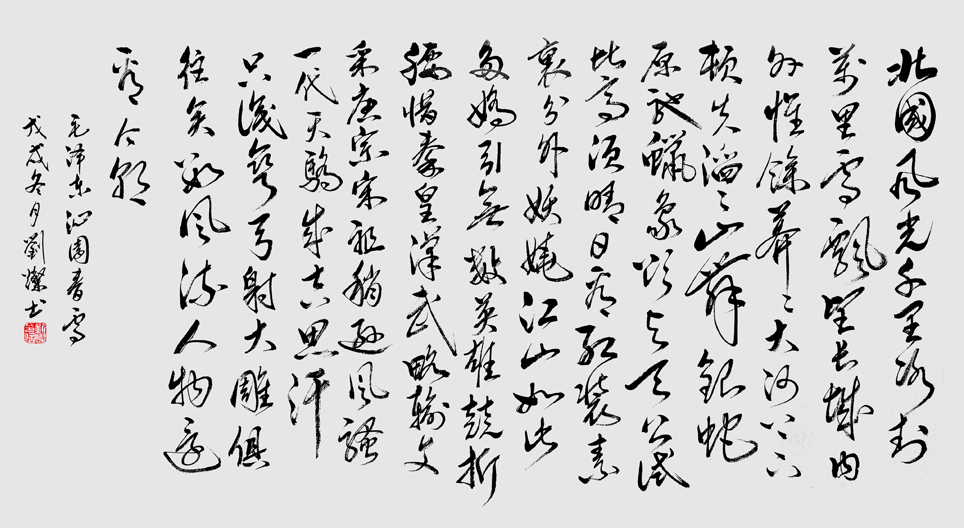 北國風光千里冰封
萬里雪飄望長城內
外惟餘莽〻大河上下
頓失滔〻山舞銀蛇
原馳蠟象欲與天公試
比高須晴日看紅裝素
裹分外妖嬈江山如此
多嬌引無數英雄競折
腰惜秦皇漢武略輸文
采唐宗宋祖稍遜風騷
一代天驕成吉思汗
只識彎弓射大雕俱
往矣數風流人物還
看今朝
毛泽东沁園春雪
戊戌冬月劉燦书